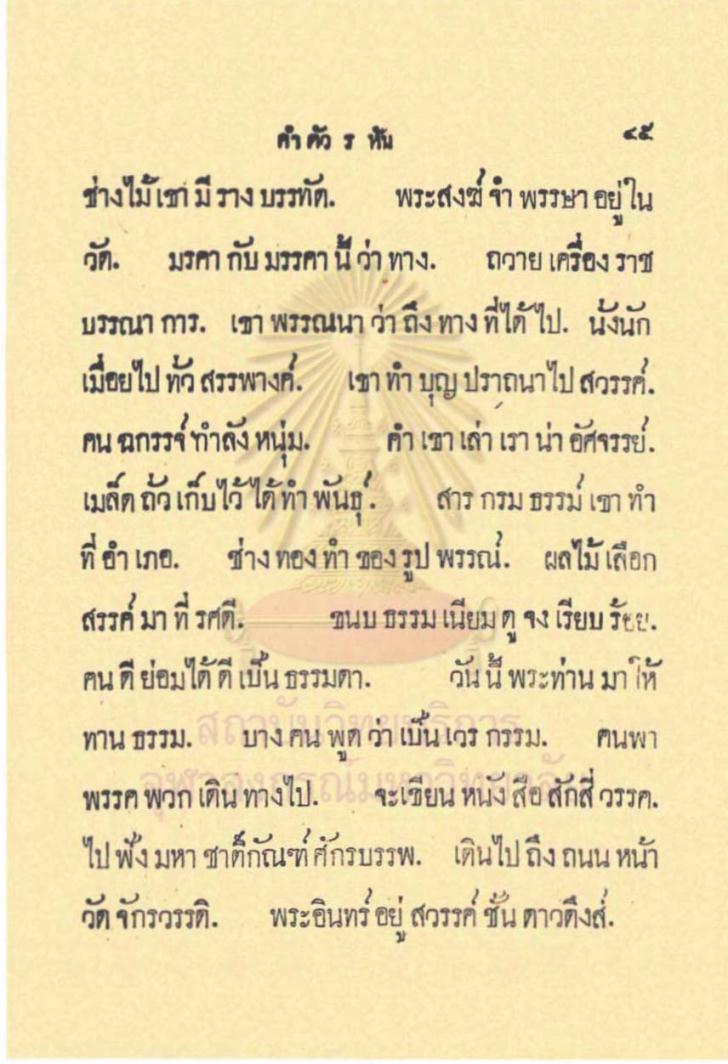 คำ ตัว ร หัน ๔๕
ช่างไม้ เขา มี ราง บรรทัด. พระสงฆ์ จำ พรรษา อยู่ ใน
วัด. มรคา กับ มรรคา นี้ ว่า ทาง. ถวาย เครื่อง ราช
บรรณา การ. เขา พรรณนา ว่า ถึง ทาง ที่ได้ ไป. นั่งนัก
เมื่อยไป ทั่ว สรรพางค์. เขา ทำ บุญ ปราถนาไป สวรรค์.
คน ฉกรรจ์ กำลัง หนุ่ม. คำ เขา เล่า เรา น่า อัศจรรย์.
เมล็ด ถั่ว เก็บไว้ ได้ ทำ พันธุ์. สาร กรม ธรรม์ เขา ทำ
ที่ อำ เภอ. ช่าง ทอง ทำ ของ รูป พรรณ์. ผลไม้ เลือก
สรรค์ มา ที่ รศดี. ขนบ ธรรม เนียม ดู จง เรียบ ร้อย.
คน ดี ย่อมได้ ดี เปน ธรรมดา. วัน นี้ พระท่าน มา ให้
ทาน ธรรม. บาง คน พูด ว่า เปน เวร กรรม. คนพา
พรรค พวก เดิน ทางไป. จะเขียน หนัง สือ สักสี่ วรรค.
ไป ฟัง มหา ชาติ์กัณฑ์ ศักรบรรพ. เดินไป ถึง ถนน หน้า
วัด จักรวรรดิ. พระอินทร์ อยู่ สวรรค์ ชั้น ดาวดึงส์.
สถาบันวิทยบริการ
จุฬาลงกรณ์มหาวิทยาลัย